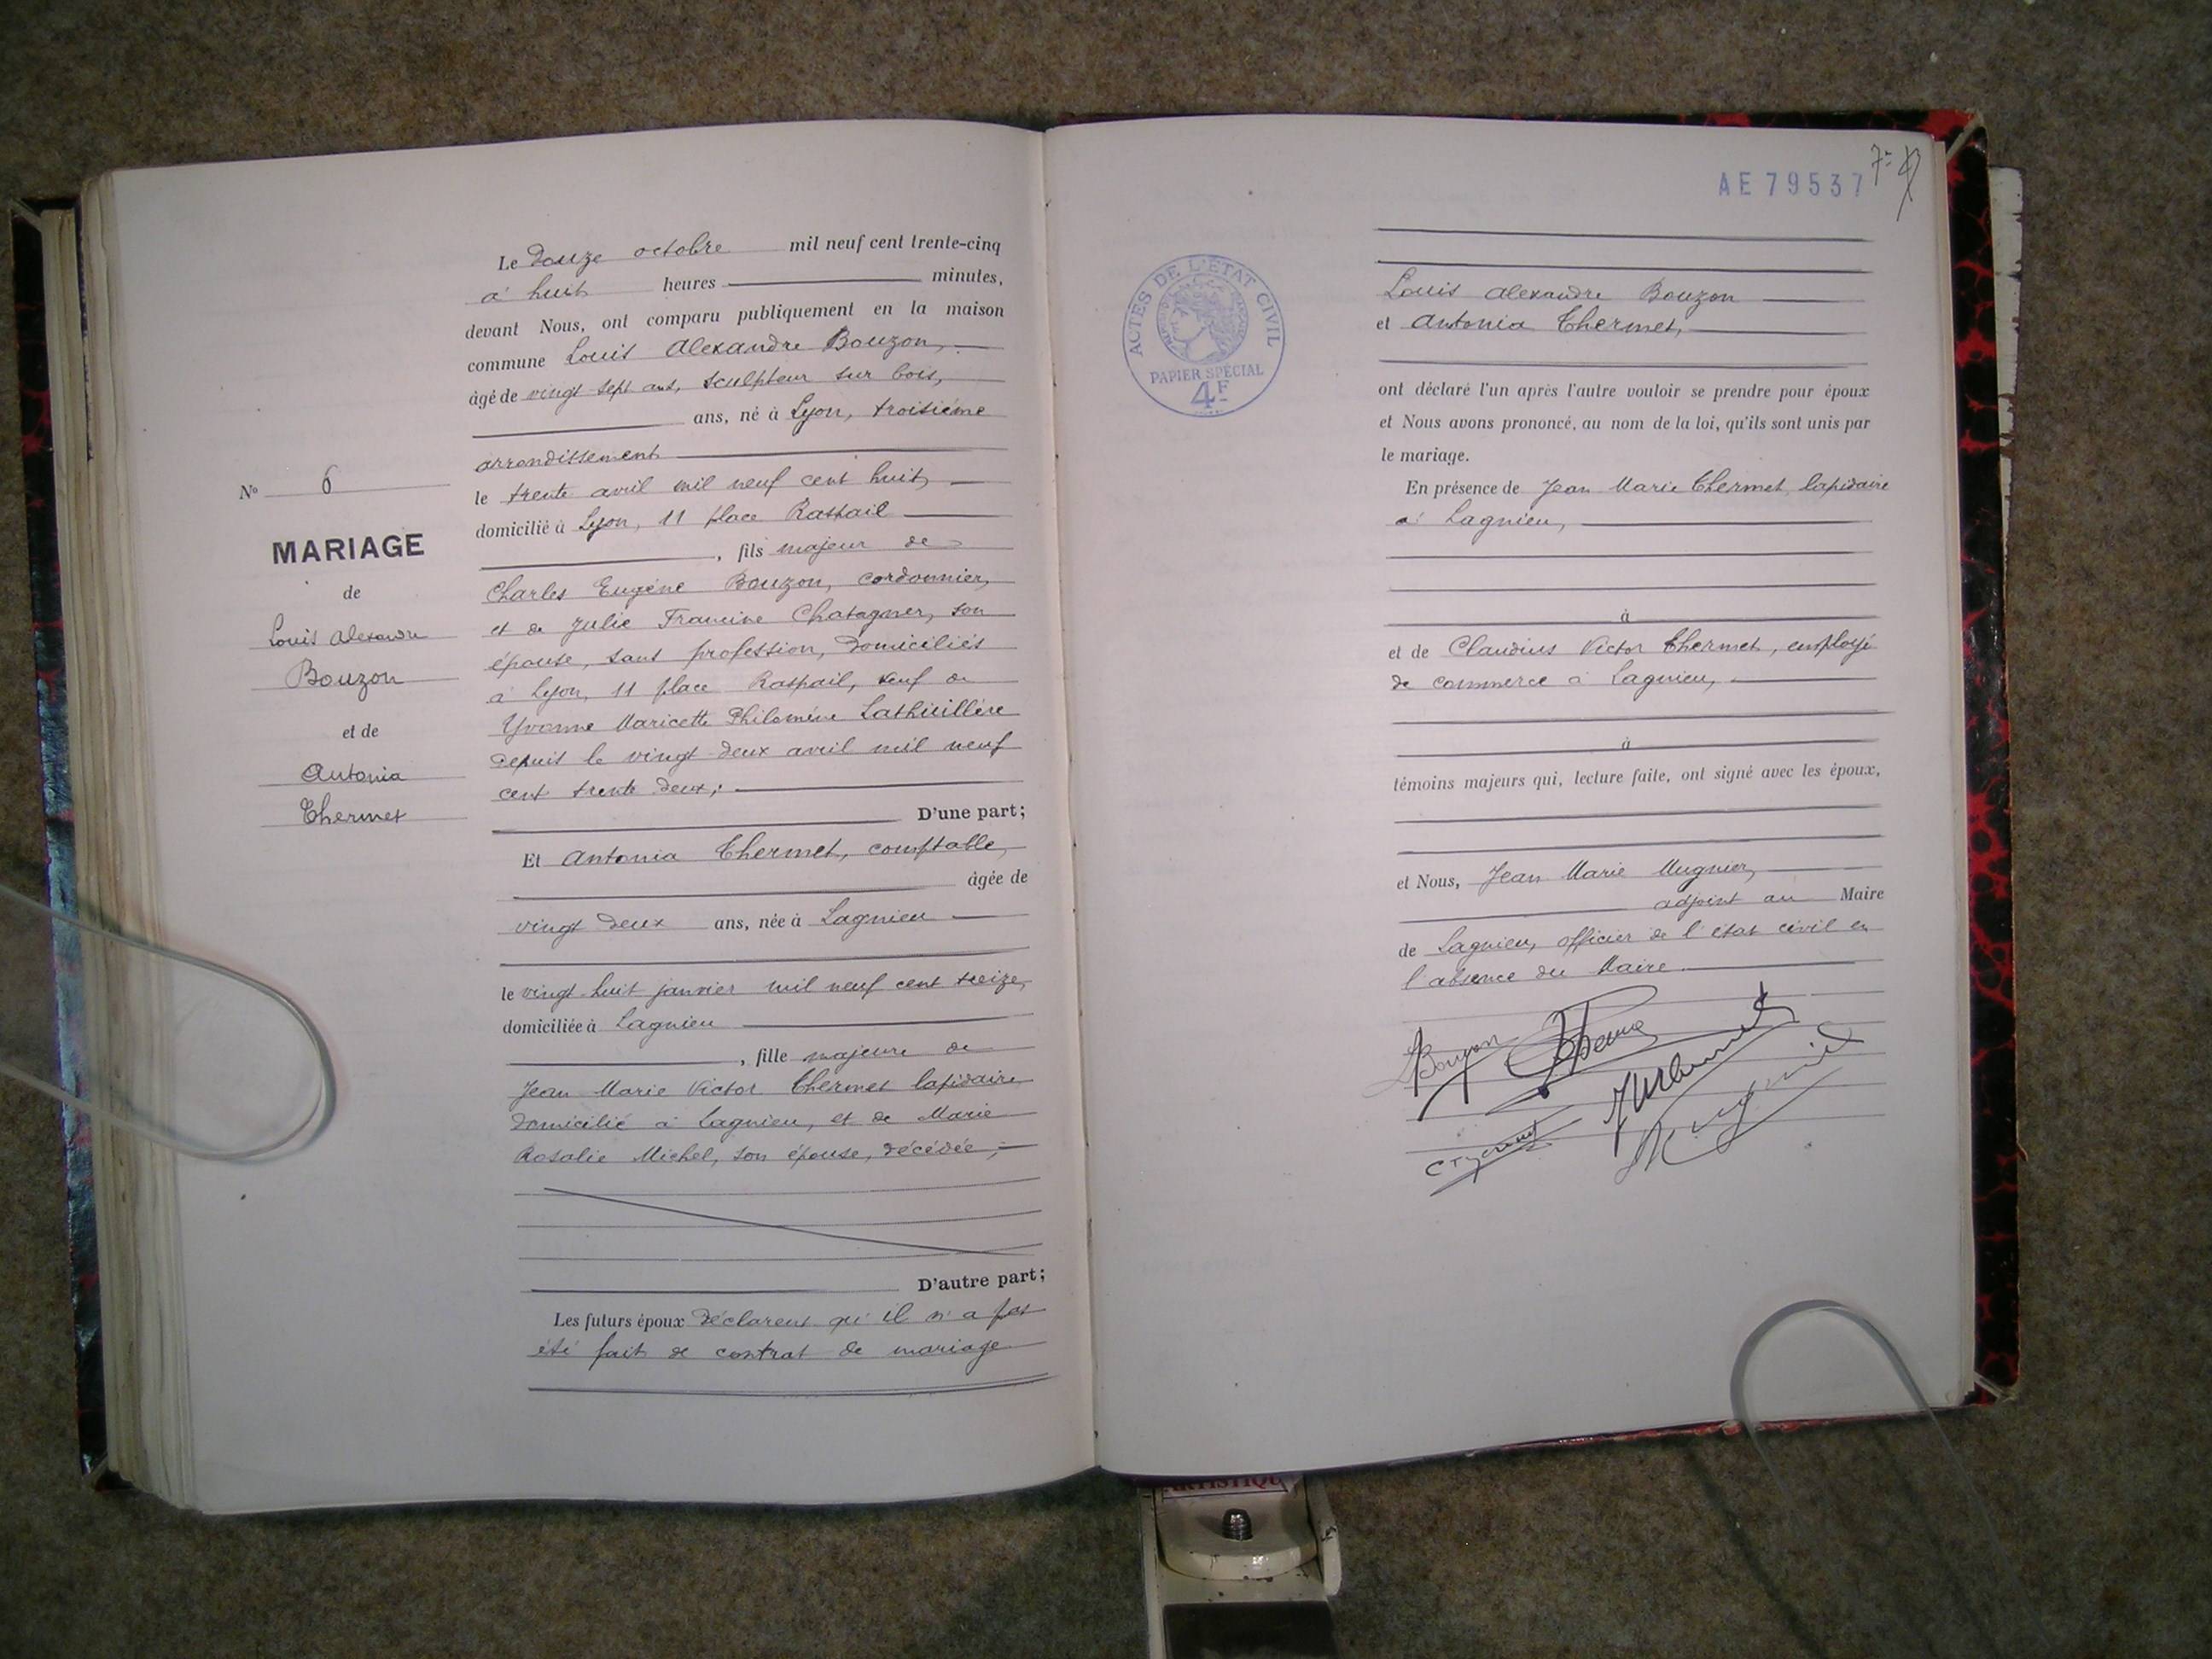 Le Douze octobre mil neuf cent trente-cinq
à huit heures minutes,
devant Nous, ont comparu publiquement en la maison
commune Louis Alexandre Bouzon,
âgé de vingt sept ans, sculpteur sur bois,
ans, né à Lyon, troisième
arrondissement
le trente avril mil neuf cent huit,
domicilié à Lyon, 11 place Raspail
, fils majeur de
Charles Eugène Bouzon, cordonnier,
et de Julie Francine Chatagner, son
épouse, sans profession, domiciliés
à Lyon, 11 place Raspail, veuf de
Yvonne Maricette Philomène Lathuillère
depuis le vingt-deux avril mil neuf
cent trente deux;
D'une part;
Et Antonia Thermet, comptable,
âgée de
vingt deux ans, née à Lagnieu
le vingt-huit janvier mil neuf cent treize,
domiciliée à Lagnieu
, fille majeure de
Jean Marie Victor Thermet lapidaire
domicilié à Lagnieu, et de Marie
Rosalie Michel, son épouse, décédée,
D'autre part;
Les futurs époux déclarent qu'il n'a pas
été fait de contrat de mariage
No 6
MARIAGE
de
Louis Alexandre
Bouzon
et de
Antonia
Thermet
AE 79537
ACTES DE L'ÉTAT CIVIL
PAPIER SPÉCIAL
4F
Louis Alexandre Bouzon
et Antonia Thermet,
ont déclaré l'un après l'autre vouloir se prendre pour époux
et Nous avons prononcé, au nom de la loi, qu'ils sont unis par
le mariage.
En présence de Jean Marie Thermet, lapidaire
à Lagnieu,
à
et de Claudius Victor Thermet, employé
de commerce à Lagnieu,
à
témoins majeurs qui, lecture faite, ont signé avec les époux,
et Nous, Jean Marie Mugnier,
adjoint au Maire
de Lagnieu, officier de l'état civil en
l'absence du Maire.
Bouzon